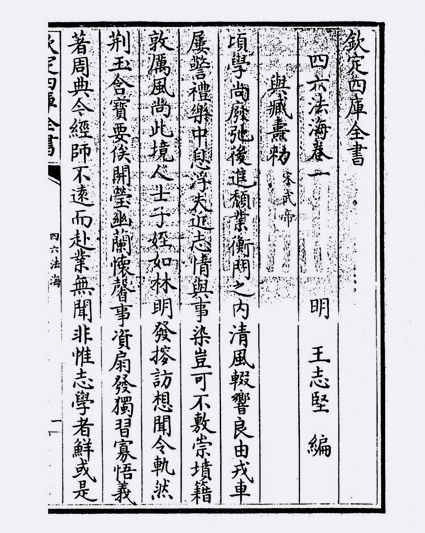 欽定四庫全書
四六法海卷一
明 王志堅 編
與臧燾敕 宋武帝
頃學尚廢弛後進頹業衡門之内清風輟響良由戎車
屢警禮樂中息浮夫近志情與事染豈可不敷崇墳籍
敦厲風尚此境人士子姪如林明發搜訪想聞令軌然
荆玉含寶要俟開瑩幽蘭懷馨事資扇發獨習寡悟義
著周典令經師不遠而赴業無聞非惟志學者鮮或是
欽定四庫全書
四六法海
一